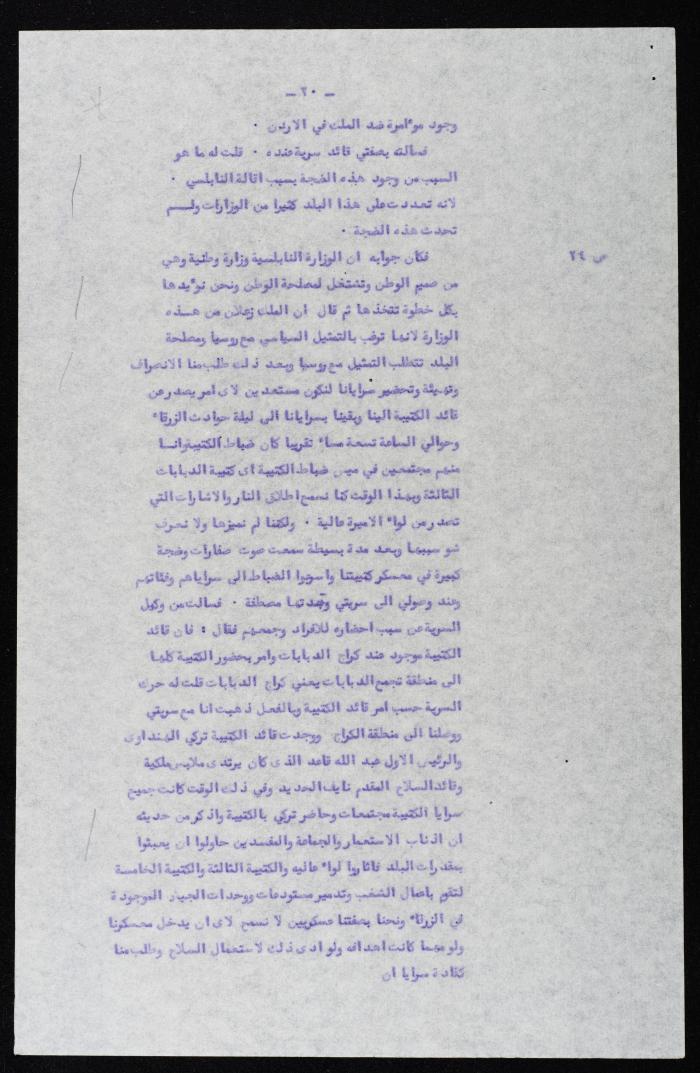 - ٢٠ -
وجود مؤامرة ضد الملك في الاردن ٠
فسالته بصفتي قائد سرية عنده ٠ قلت له ما هو
السبب من وجود هذه الضجة بسبب اقالة النابلسي ٠
لانه تعددت على هذا البلد كثيرا من الوزارات ولم
تحدث هذه الضجة ٠
ص ٢٤
فكان جوابه ان الوزارة النابلسية وزارة وطنية وهي
من صميم الوطن وتشتغل لمصلحة الوطن ونحن نؤيدها
بكل خطوة تتخذها ثم قال ان الملك زعلان من هذه
الوزارة لانها ترغب بالتمثيل السياسي مع روسيا ومصلحة
البلد تتطلب التمثيل مع روسيا وبعد ذلك طلب منا الانصراف
وتهيئة وتحضير سرايانا لنكون مستعدين لاى امر يصدر عن
قائد الكتيبة الينا وبقينا بسرايانا الى ليلة حوادث الزرقاء
وحوالي الساعة تسعة مساء تقريبا كان ضباط الكتيبة وانا
منهم مجتمعين في ميس ضباط الكتيبة اى كتيبة الدبابات
الثالثة وبهذا الوقت كنا نسمع اطلاق النار والاشارات التي
تصدر من لواء الاميرة عالية ٠ ولكننا لم نميزها ولا نعرف
شو سببها وبعد مدة بسيطة سمعت صوت صفارات وضجة
كبيرة في معسكر كتيبتنا واسرعوا الضباط الى سراياهم وفئاتهم
وعند وصولي الى سريتي وجدتها مصطفة ٠ فسالت من وكيل
السرية عن سبب احضاره للافراد وجمعهم فقال : فان قائد
الكتيبة موجود عند كراج الدبابات وامر بحضور الكتيبة كلها
الى منطقة تجمع الدبابات يعني كراج الدبابات قلت له حرك
السرية حسب امر قائد الكتيبة وبالفعل ذهبت انا مع سريتي
ووصلنا الى منطقة الكراج ووجدت قائد الكتيبة تركي الهنداوى
والرئيس الاول عبد الله قاعد الذى كان يرتدى ملابس ملكية
وقائد السلاح المقدم نايف الحديد وفي ذلك الوقت كانت جميع
سرايا الكتيبة مجتمعات وحاضر تركي بالكتيبة واذكر من حديثه
ان اذناب الاستعمار والجماعة والمفسدين حاولوا ان يعبثوا
بمقدرات البلد فاثاروا لواء عاليه والكتيبة الثالثة والكتيبة الخامسة
لتقوم باعمال الشغب وتدمير مستودعات ووحدات الجيش الموجودة
في الزرقاء ونحنا بصفتنا عسكريين لا نسمح لاى ان يدخل معسكرنا
ولو مهما كانت اهدافه ولو ادى ذلك لاستعمال السلاح وطلب منا
كقادة سرايا ان